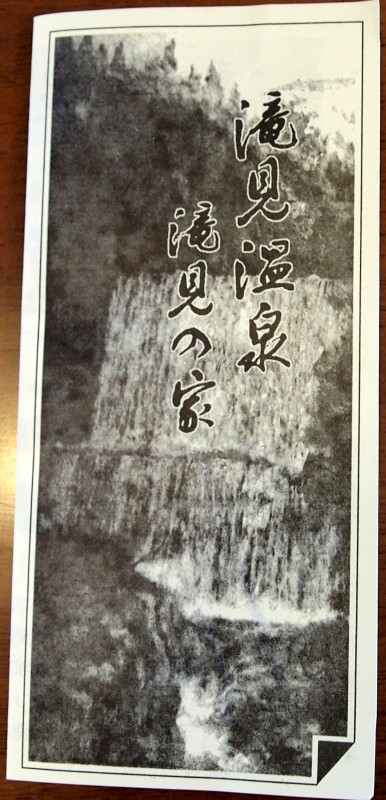 滝見温泉
滝見の家